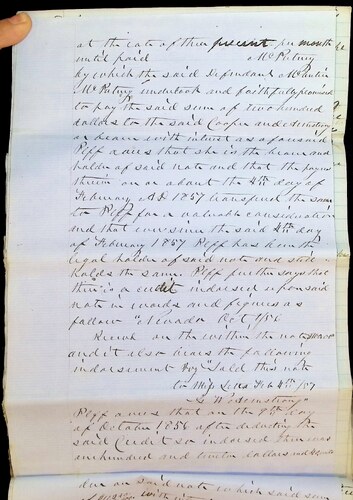 at the rate of three percent per month
until paid McPutney
by which the said Defendant Martin
McPutney undertook and faithfully promised
to pay the said sum of two hundred
dollars to the said Cooper and Armstrong
or bearer with interest as aforesaid
Plff avers that she is the bearer and
holder of said note and that the payees
therein on or about the 4th day of
February AD 1857 transferred the same
to Plff for a valuable consideration
and that ever since the said 4th day
of February 1857 Plff has been the
legal holder of said note and still
holds the same. Plff further says that
there is a credit indorsed upon said
note in words and figures as
follow "Nevada Oct 9/56
Received on the within note
and it also bears the following
indorsement "Sold this note
to Miss Feb 4th /57
Armstrong"
Plff avers that on the 9th day
of October 1856 after deducting the
said Credit so indorsed there was
one hundred and dollars and
due on said note which said sum
with